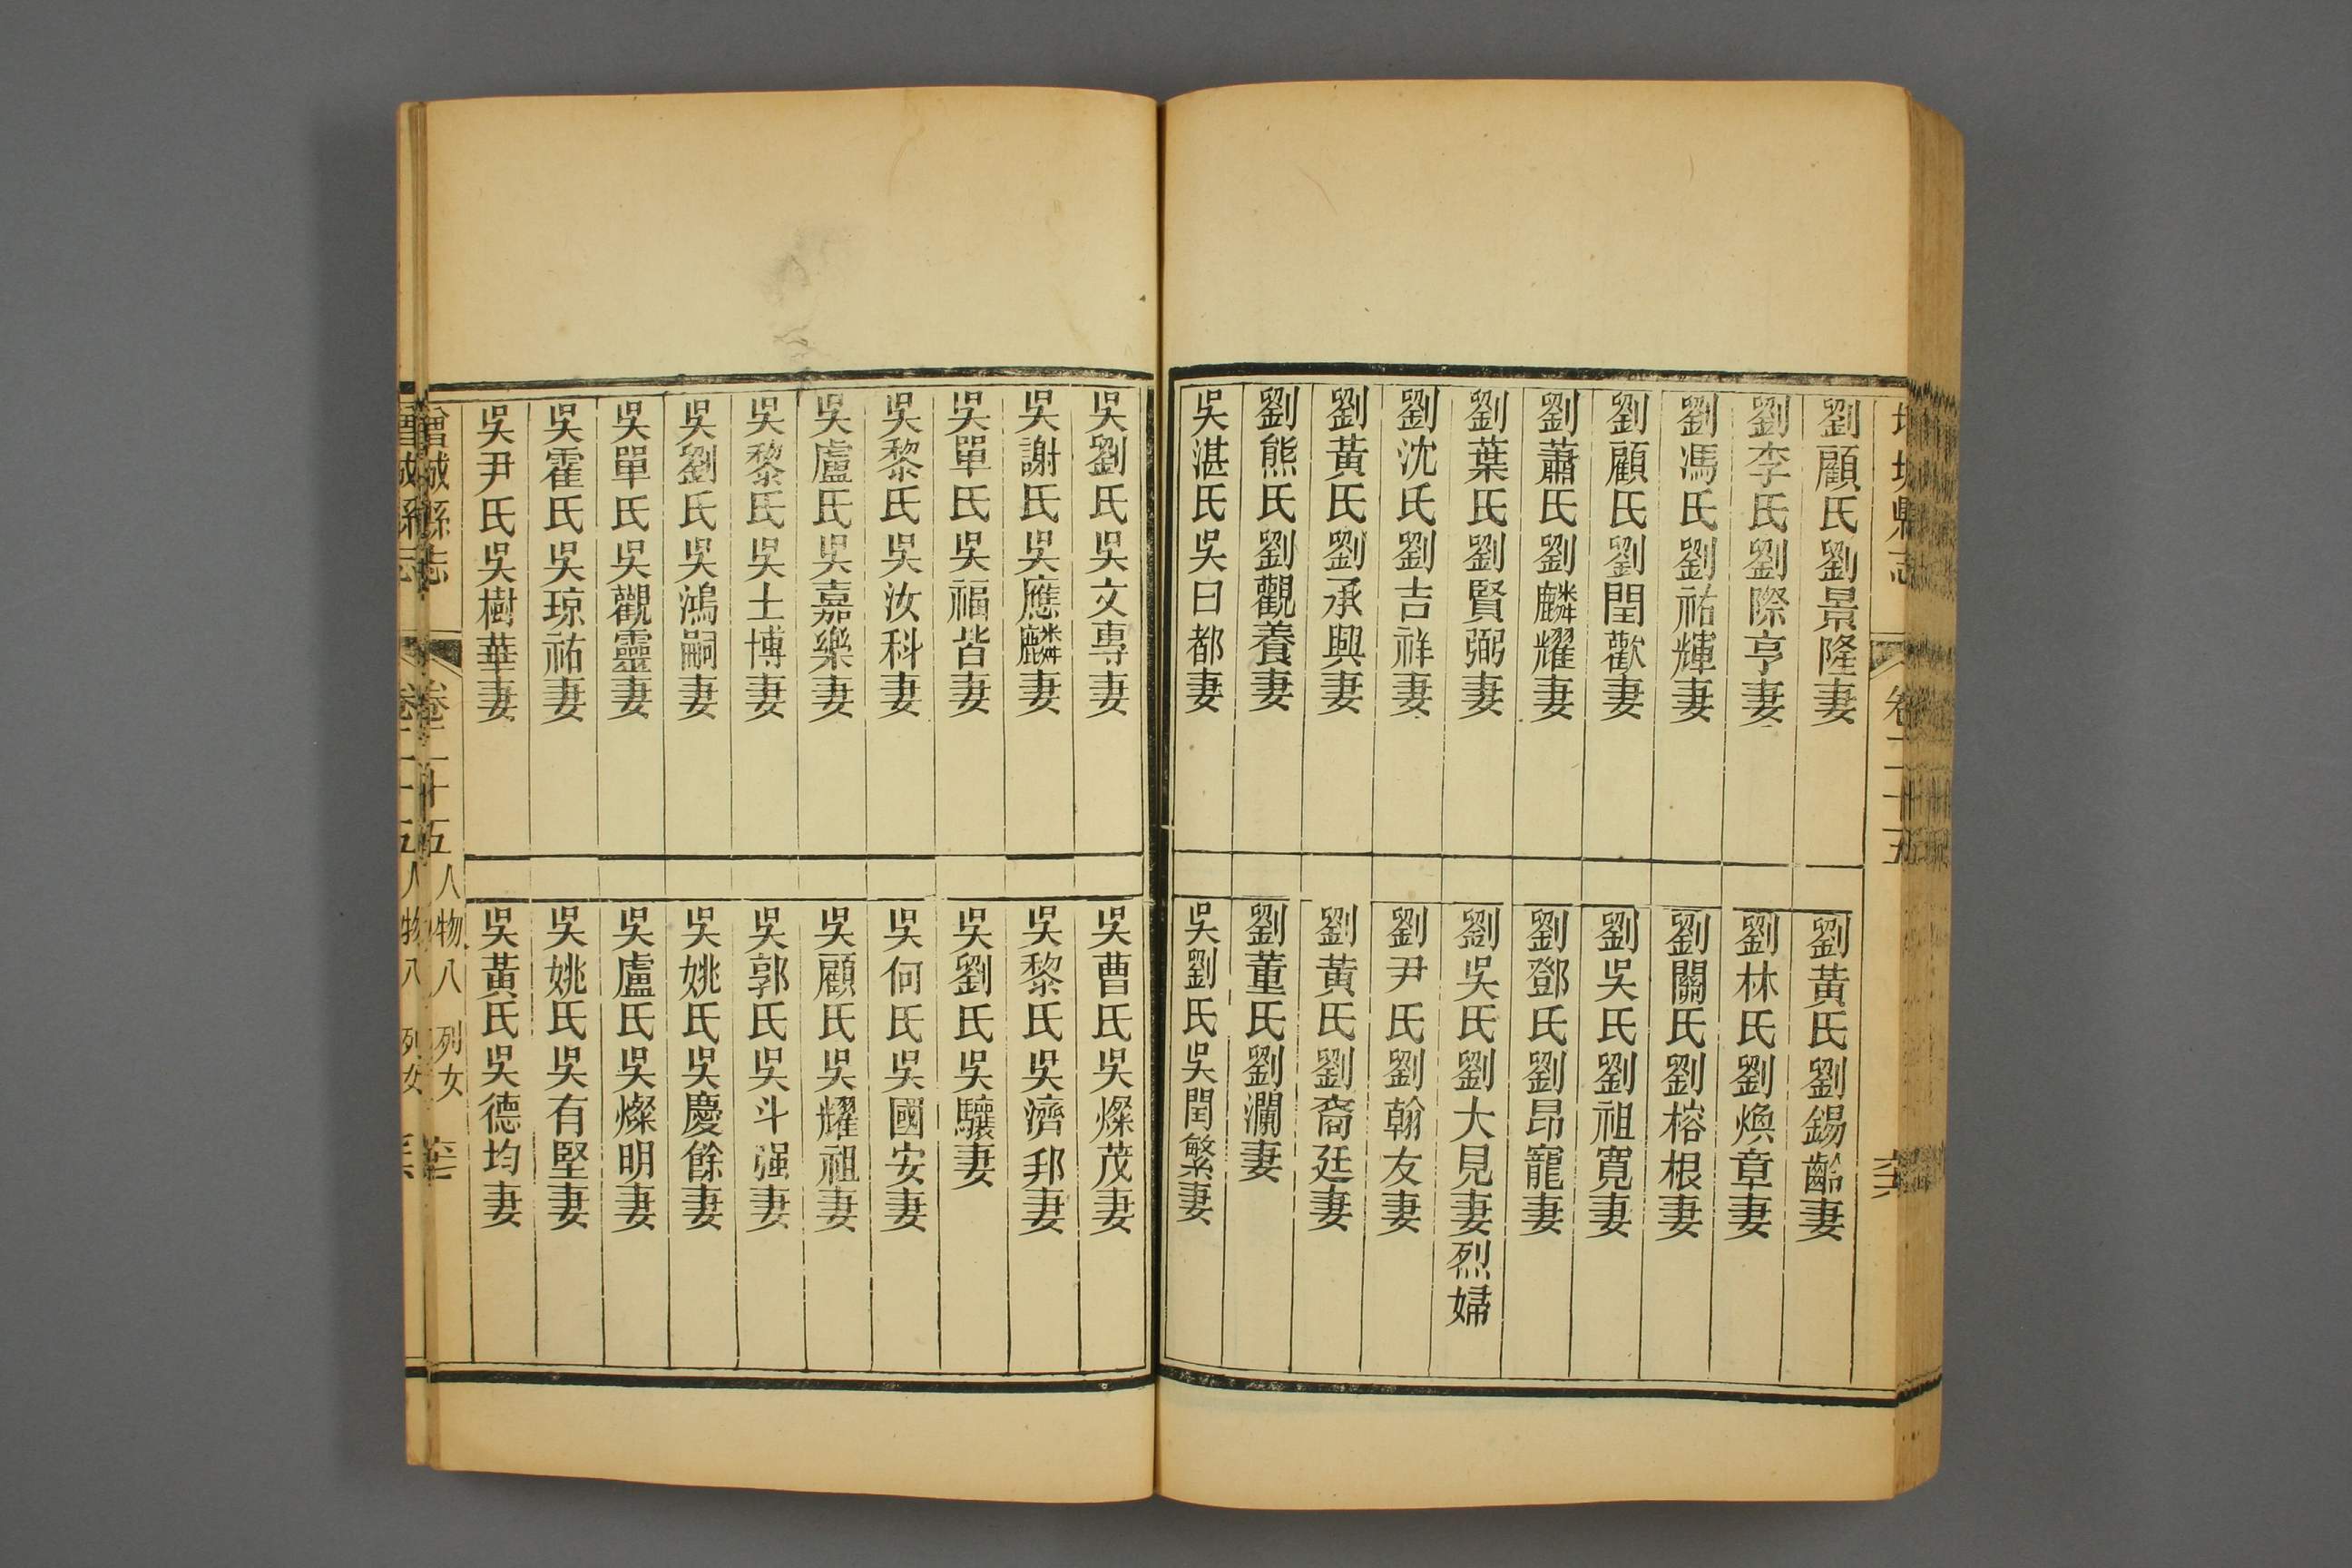 劉顧氏劉景隆妻
劉李氏劉際亨妻
劉馮氏劉祐輝妻
劉顧氏劉閏歡妻
劉蕭氏劉麟耀妻
劉葉氏劉賢弼妻
劉沈氏劉吉祥妻
劉黃氏劉承興妻
劉熊氏劉觀養妻
吳湛氏吳日都妻
劉黃氏劉錫齡妻
劉林氏劉煥章妻
劉關氏劉榕根妻
劉吳氏劉祖寬妻
劉鄧氏劉昂寵妻
劉吳氏劉大見妻烈婦
劉尹氏劉翰友妻
劉黃氏劉裔廷妻
劉董氏劉瀾妻
吳劉氏吳閏繁妻
吳劉氏吳文專妻
吳謝氏吳應麟妻
吳單氏吳福皆妻
吳黎氏吳汝科妻
吳盧氏吳嘉樂妻
吳黎氏吳士博妻
吳劉氏吳鴻嗣妻
吳單氏吳觀靈妻
吳霍氏吳琼祐妻
吳尹氏吳樹華妻
吳曹氏吳燦茂妻
吳黎氏吳濟邦妻
吳劉氏吳驤妻
吳何氏吳國安妻
吳顧氏吳耀祖妻
吳郭氏吳斗强妻
吳姚氏吳慶餘妻
吳盧氏吳燦明妻
吳姚氏吳有堅妻
吳黃氏吳德均妻
增城縣志 卷二十五 人物八 列女